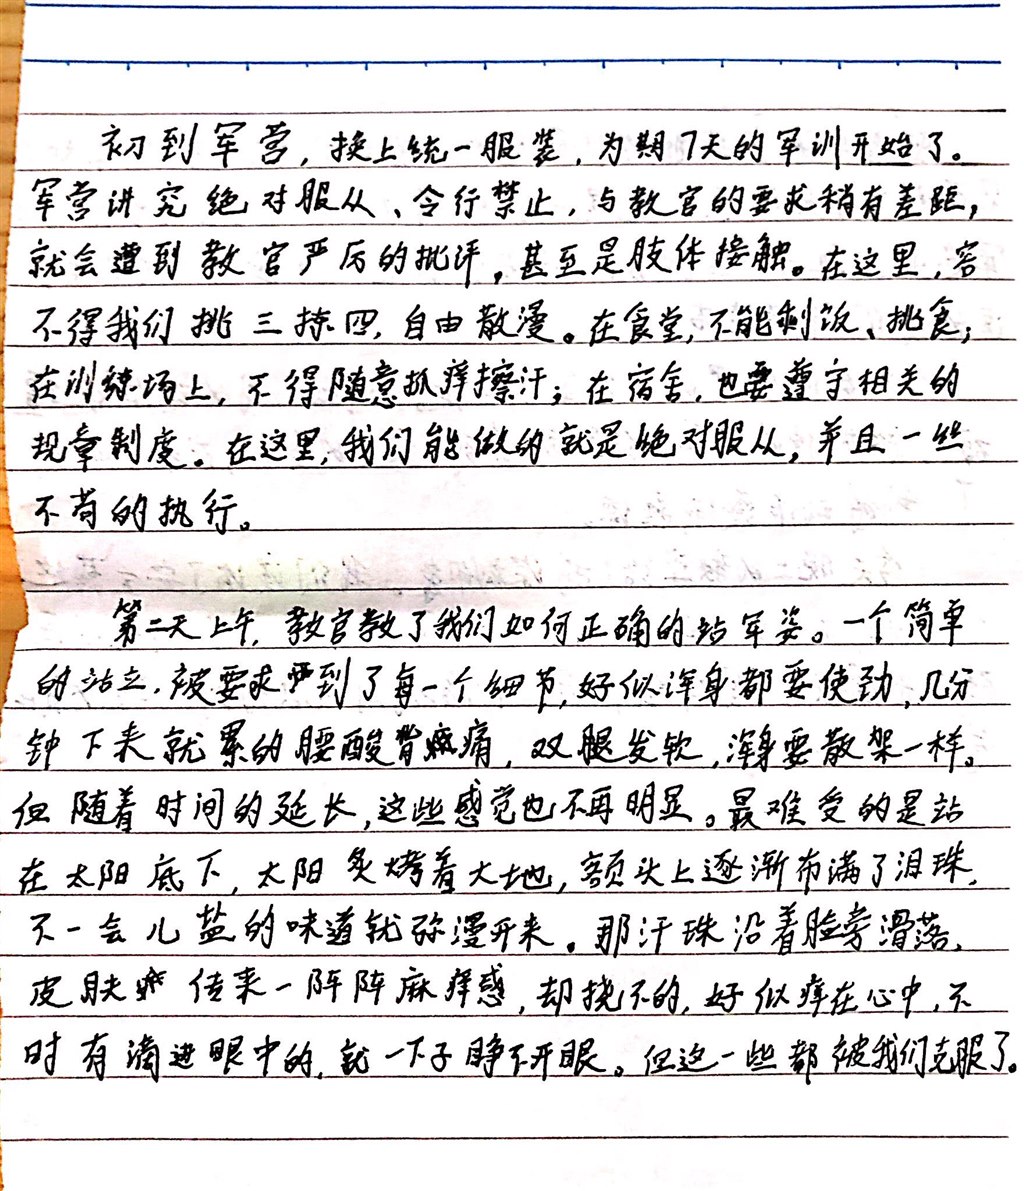 初到军营，换上统一服装，为期7天的军训开始了。
军营讲究绝对服从、令行禁止，与教官的要求稍有差距，
就会遭到教官严厉的批评，甚至是肢体接触。在这里，容
不得我们挑三拣四，自由散漫。在食堂，不能剩饭、挑食，
在训练场上，不得随意抓痒擦汗；在宿舍，也要遵守相关的
规章制度。在这里，我们能做的就是绝对服从，并且一丝
不苟的执行。
第二天上午，教官教了我们如何正确的站军姿。一个简单
的站立，被要求严到了每一个细节，好似浑身都要使劲，几分
钟下来就累的腰酸背痛，双腿发软，浑身要散架一样。
但随着时间的延长，这些感觉也不再明显。最难受的是站
在太阳底下，太阳炙烤着大地，额头上逐渐布满了泪珠，
不一会儿盐的味道就弥漫开来。那汗珠沿着脸旁滑落，
皮肤传来一阵阵麻痒感，却挠不的，好似痒在心中，不
时有滴进眼中的，就一下子睁不开眼。但这一些都被我们克服了。